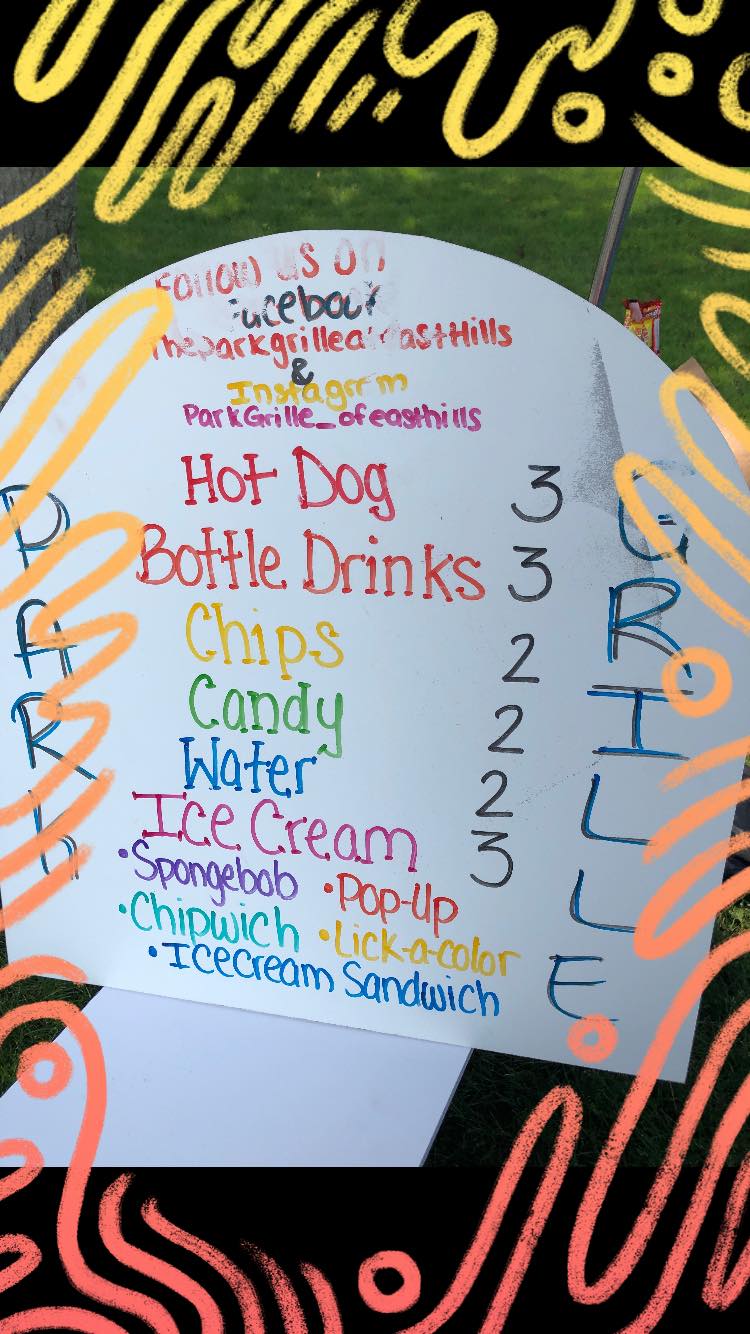 Follow us on
Facebook
TheparkgrilleatEastHills
&
Instagrrm
ParkGrille_ofeasthills
Hot Dog 3
Bottle Drinks 3
Chips 2
Candy 2
Water 2
Ice Cream 3
•Spongebob •Pop-Up
•Chipwich •Lick-a-color
•Icecream Sandwich
PARK
GRILLE